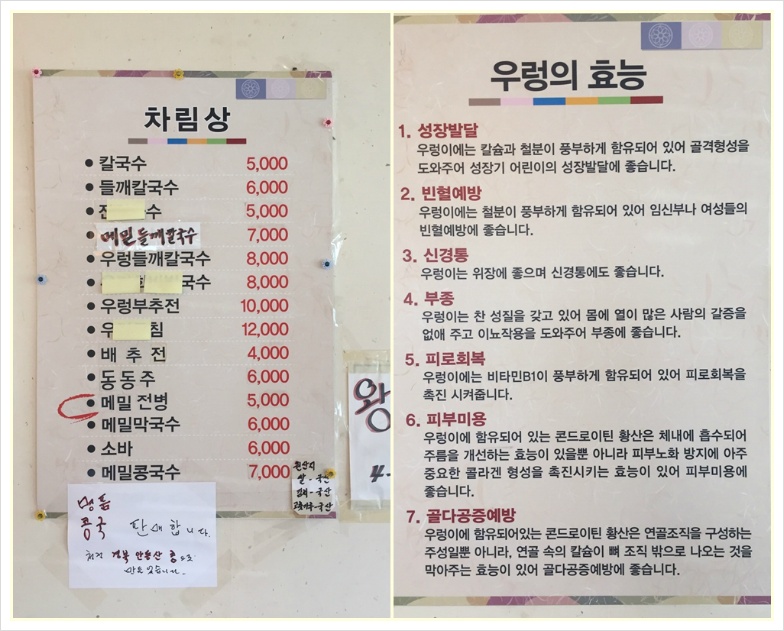 차림상
칼국수 5,000
들깨칼국수 6,000
수 5,000
메밀들깨칼국수 7,000
우렁들깨칼국수 8,000
국수 8,000
우렁부추전 10,000
우 침 12,000
배 추 전 4,000
동동주 6,000
메밀전병 5,000
메밀막국수 6,000
소바 6,000
메밀콩국수 7,000
원산지
쌀 - 국산
김치 - 국산
고춧가루 - 국산
명품
콩국 판매합니다.
경북 안동산 콩으로
왕
4-
우렁의 효능
1. 성장발달
우렁이에는 칼슘과 철분이 풍부하게 함유되어 있어 골격형성을
도와주어 성장기 어린이의 성장발달에 좋습니다.
2. 빈혈예방
우렁이에는 철분이 풍부하게 함유되어 있어 임신부나 여성들의
빈혈예방에 좋습니다.
3. 신경통
우렁이는 위장에 좋으며 신경통에도 좋습니다.
4. 부종
우렁이는 찬 성질을 갖고 있어 몸에 열이 많은 사람의 갈증을
없애 주고 이뇨작용을 도와주어 부종에 좋습니다.
5. 피로회복
우렁이에는 비타민B1이 풍부하게 함유되어 있어 피로회복을
촉진 시켜줍니다.
6. 피부미용
우렁이에 함유되어 있는 콘드로이틴 황산은 체내에 흡수되어
주름을 개선하는 효능이 있을뿐 아니라 피부노화 방지에 아주
중요한 콜라겐 형성을 촉진시키는 효능이 있어 피부미용에
좋습니다.
7. 골다공증예방
우렁이에 함유되어있는 콘드로이틴 황산은 연골조직을 구성하는
주성일뿐 아니라, 연골 속의 칼슘이 뼈 조직 밖으로 나오는 것을
막아주는 효능이 있어 골다공증예방에 좋습니다.